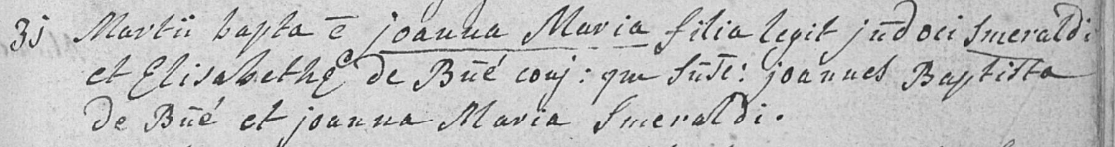 31 Martii bapta ē joanna Maria filia legit jūdoci Smeraldi
et Elisabethę de Būé conj: que suūt: joannes Baptista
de Būé et joanna Maria Smeraldi.